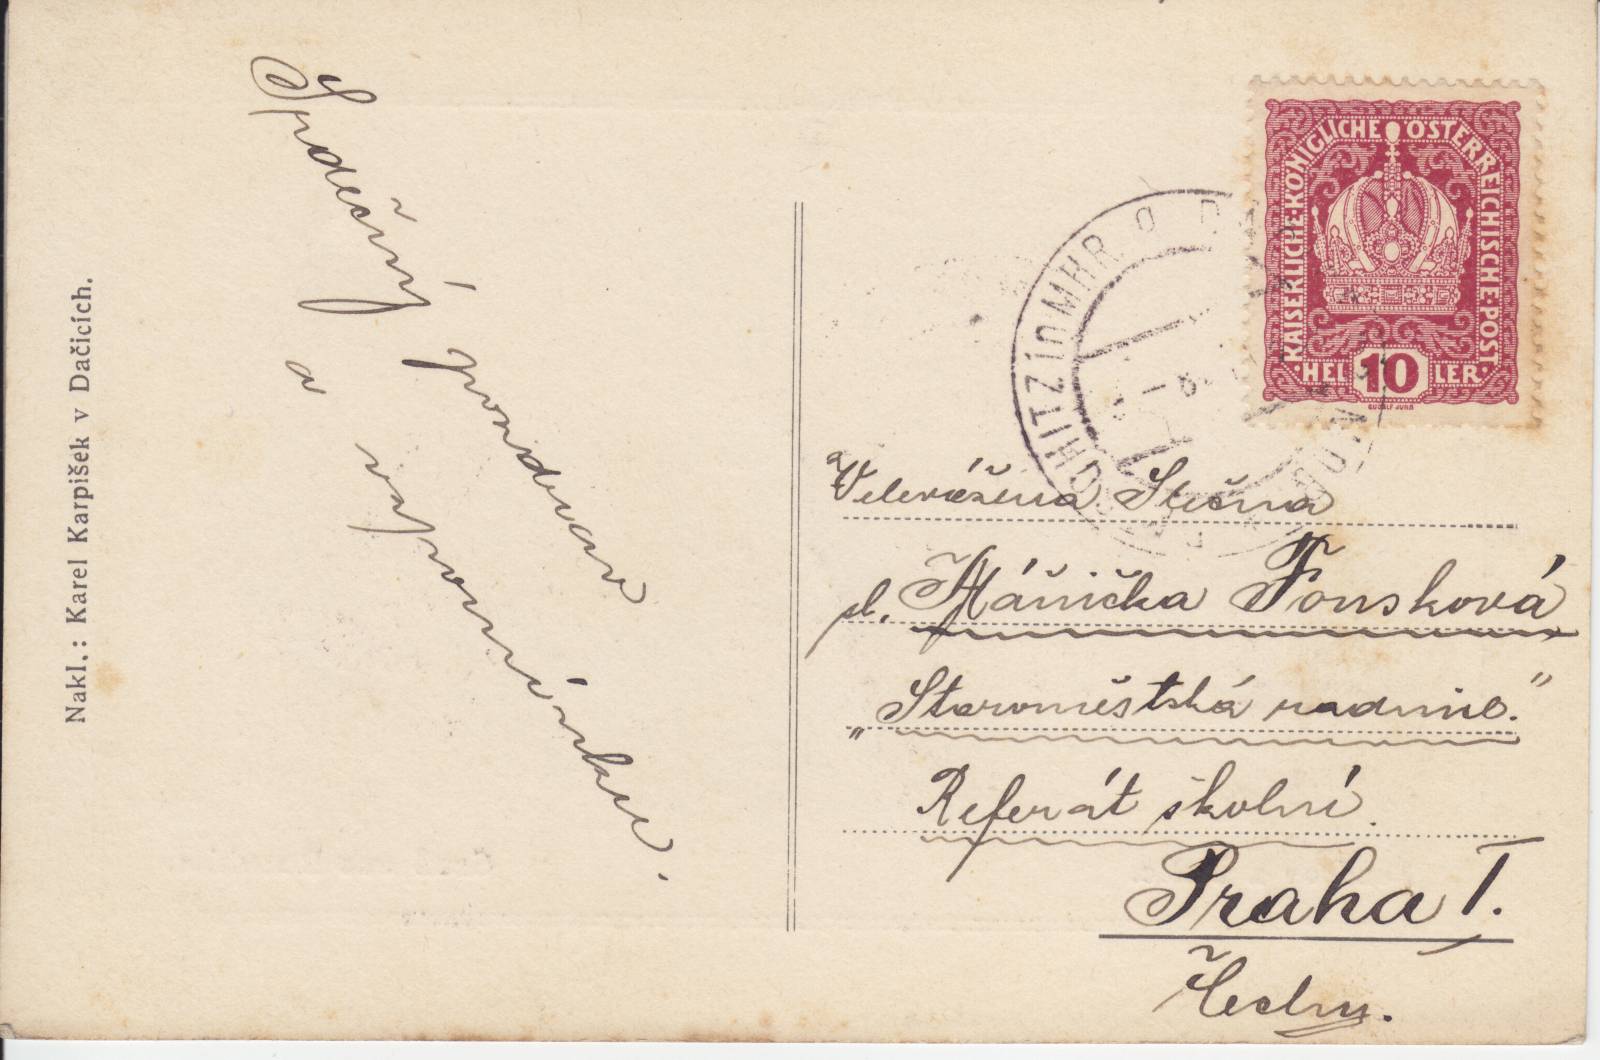 Nakl.: Karel Karpíšek v Dačicích.
Srdečný
pozdrav
a
vzpomínku.
KAISERLICHE·KÖNIGLICHE ÖSTERREICHISCHE·POST
·HELLER·
10
Velevážená Slečna
sl. Máňička Fonsková
„Staroměstská radnice."
Referát školní.
Praha I.
Čechy.